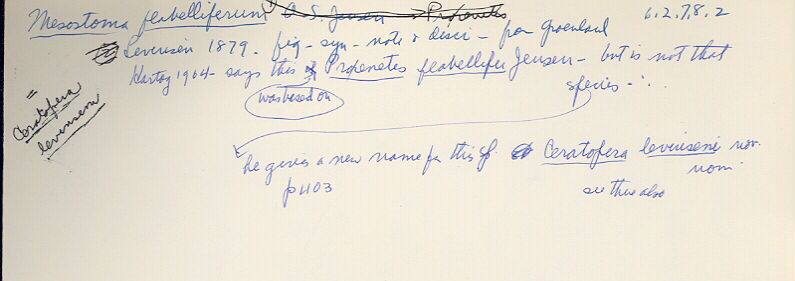 Mesostoma flabelliferum A. S. Jensen → Proxenetes 6.2.7.8.2
Levinsen 1879. fig - syn - note & disci - from Greenland
Hartog 1964 - says this is Proxenetes flabellifer Jensen - but is not that
was based on species - ∴
= Ceratopera
levinseni
he gives a new name for this sp. Ceratopera levinseni nov.
p 403 nom.
see there also